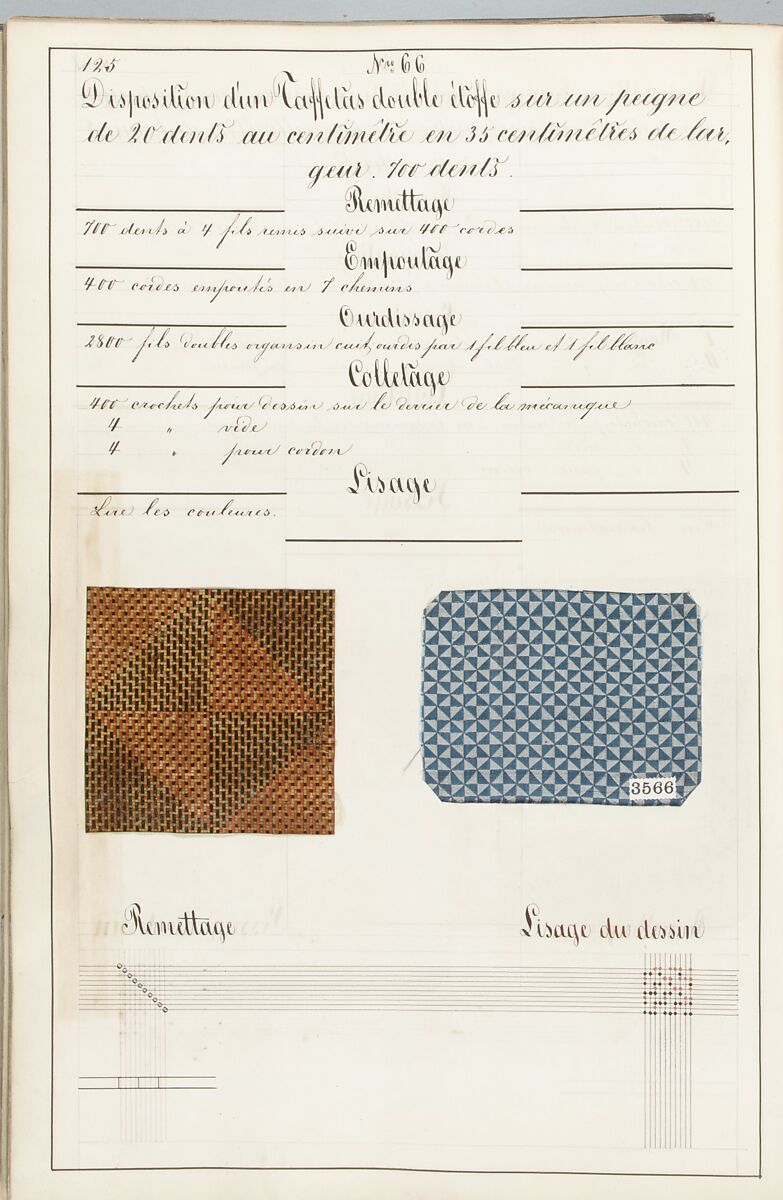 125
Nro 66
Disposition d'un Taffetas double étoffe sur un peigne
de 20 dents au centimêtre en 35 centimêtres de lar,
geur. 700 dents.
Remettage
700 dents à 4 fils remis suivi sur 400 cordes
Empoutage
400 cordes empoutés en 7 chemins
Ourdissage
2800 fils doubles organsin cuit, ourdis par 1 fil bleu et 1 fil blanc
Colletage
400 crochets pour dessin sur le derrier de la mécanique
4 " vide
4 " pour cordon
Lisage
Lire les couleures.
3566
Remettage
Lisage du dessin